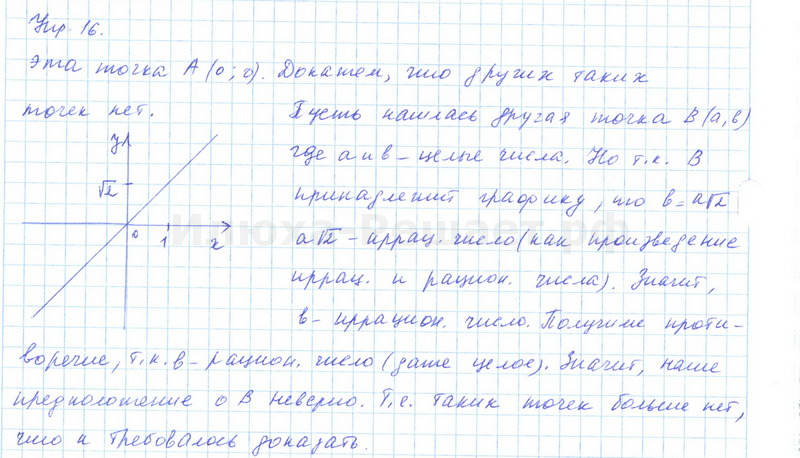 Упр 16.
Эта точка A (0; 0). Докажем, что других таких
точек нет.
Пусть нашлась другая точка B (a, в)
где a и в – целые числа. Но т.к. B
принадлежит графику, то в = a√2
a√2 – иррац. число (как произведение
иррац. и рацион. числа). Значит,
в – иррацион. число. Получили проти-
воречие, т.к. в – рацион. число (даже целое). Значит, наше
предположение о B неверно. Т.е. таких точек больше нет,
что и требовалось доказать.
y
√2
0
1
x